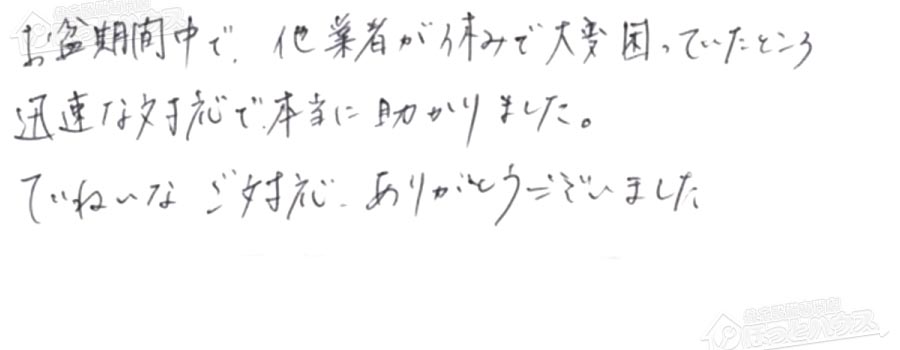 お盆期間中で、他業者が休みで大変困っていたところ
迅速な対応で、本当に助かりました。
ていねいなご対応、ありがとうございました
ほっとハウス